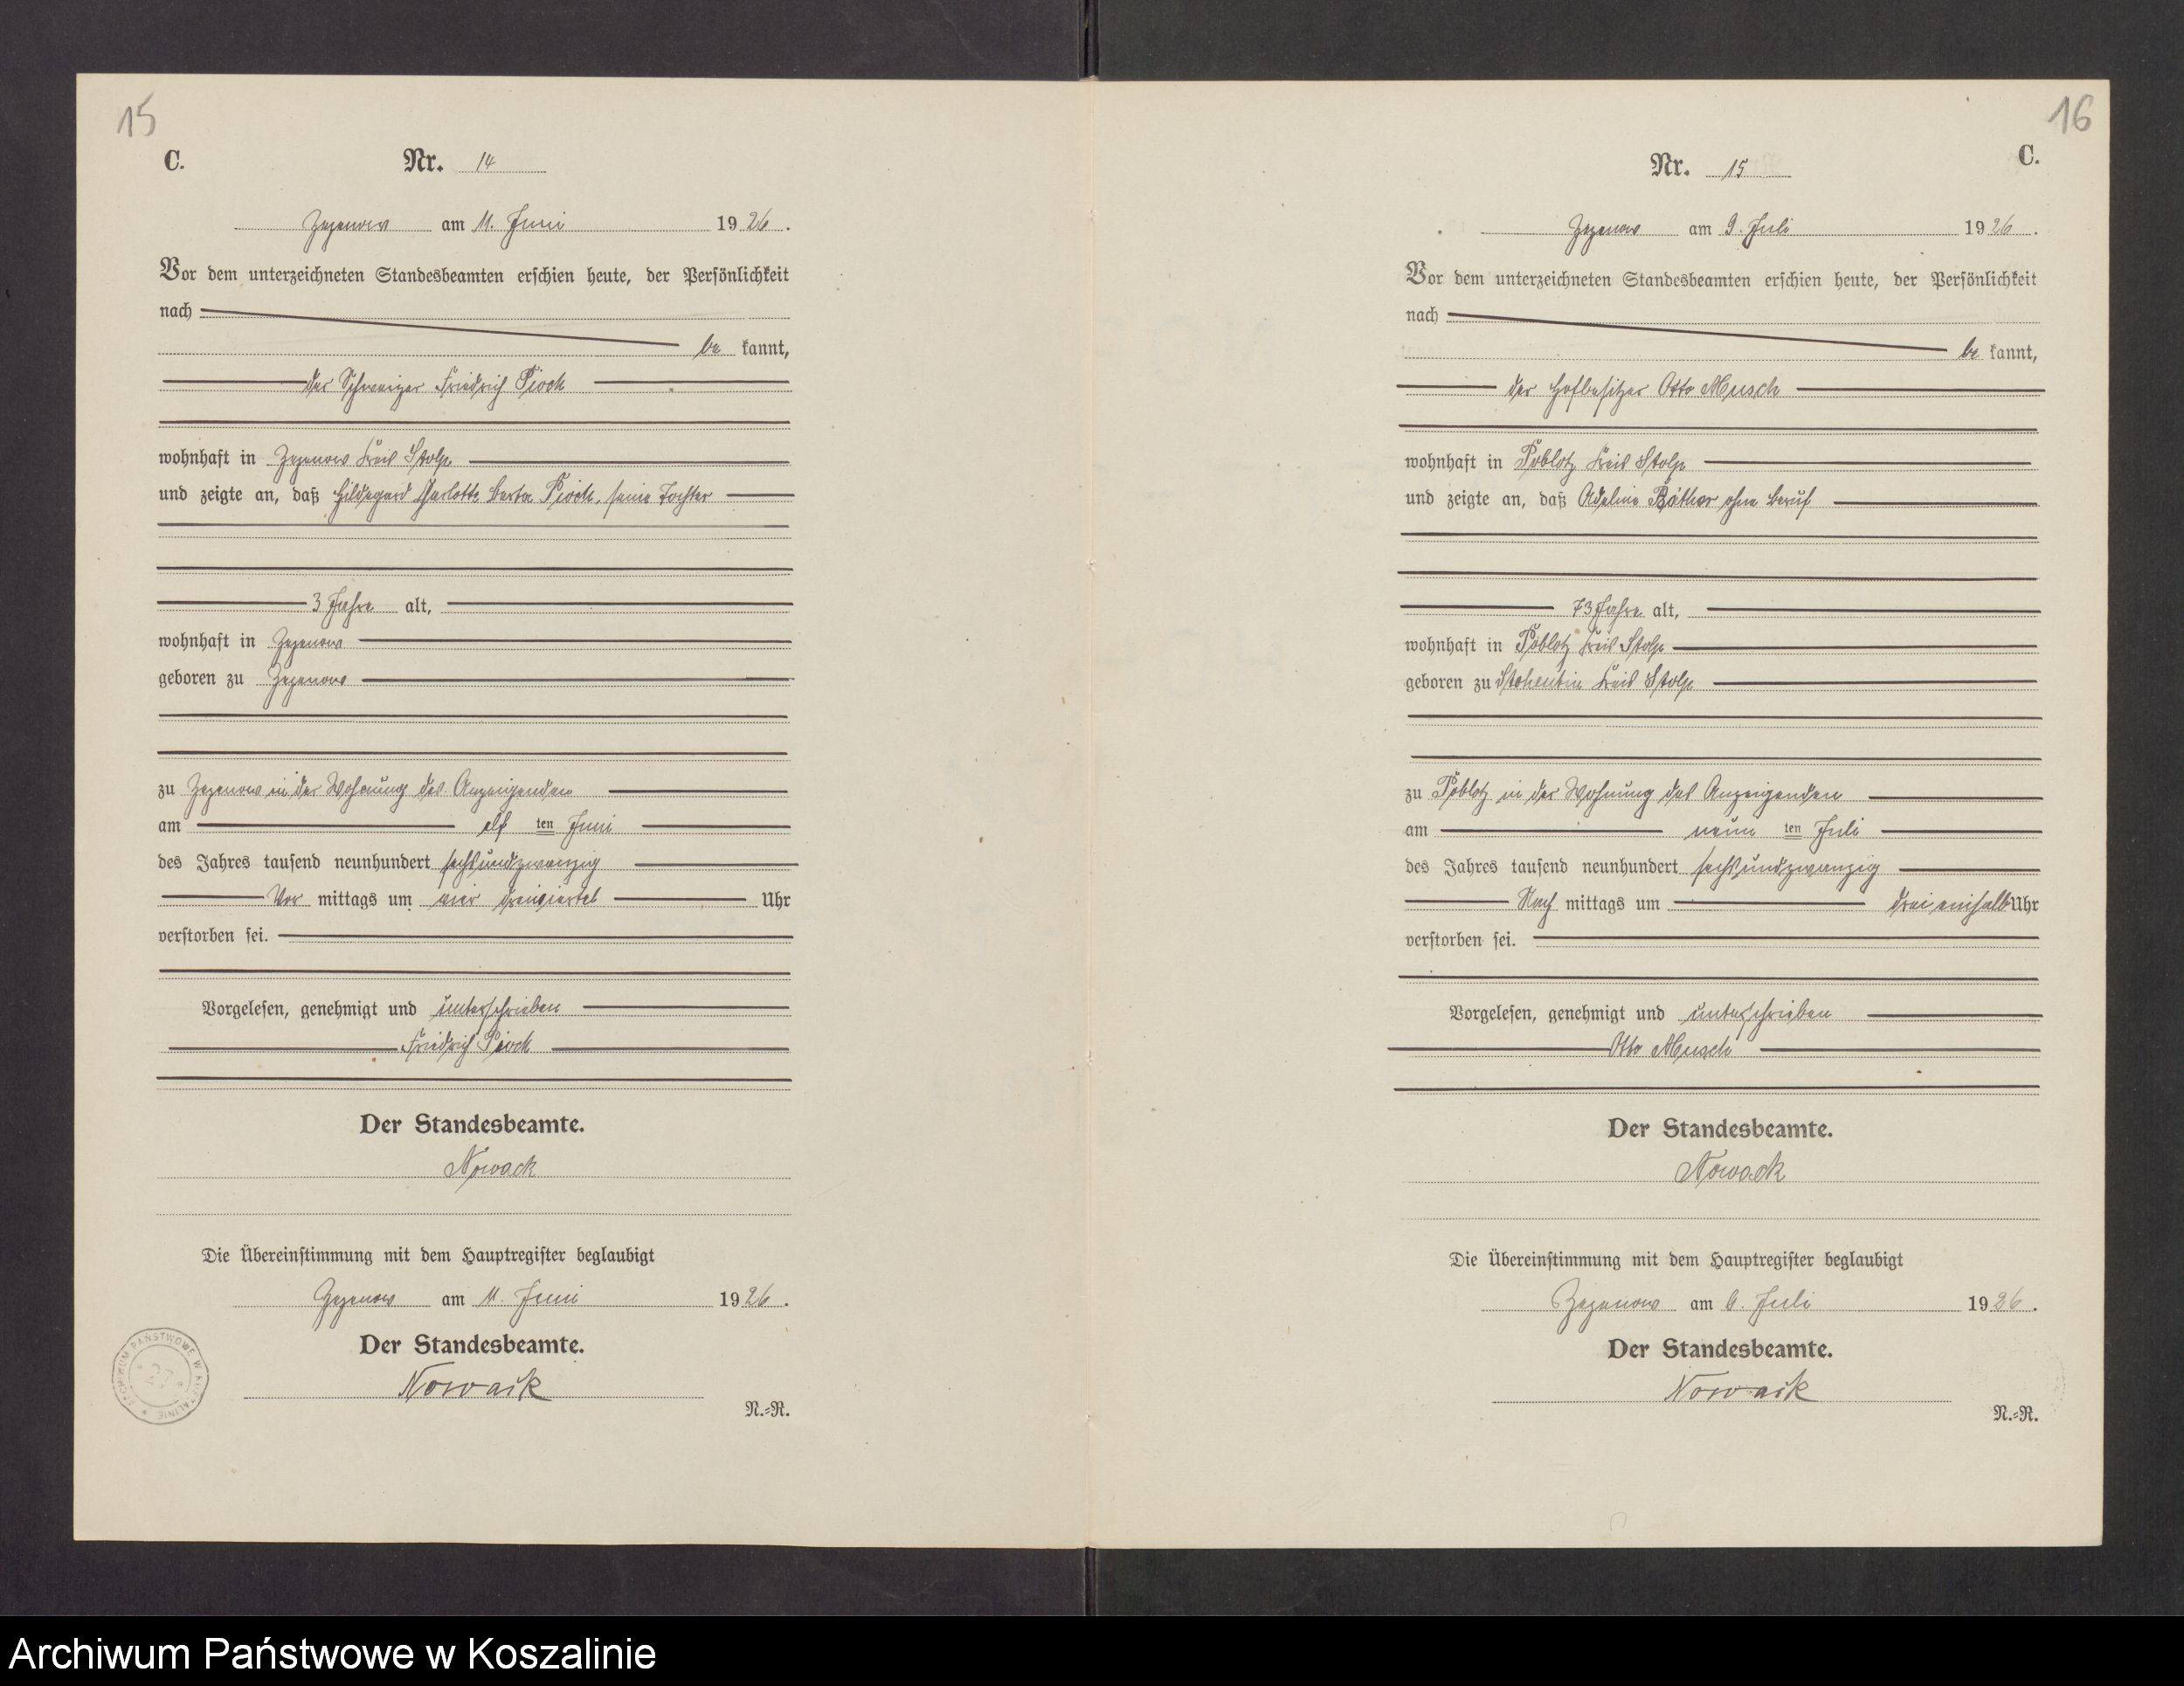 15
C.
Nr. 14
Zezenow am 11. Juni 1926.
Vor dem unterzeichneten Standesbeamten erschien heute, der Persönlichkeit
nach
be kannt,
der Schweizer Friedrich Pioch
wohnhaft in Zezenow Kreis Stolp
und zeigte an, daß Hildegard Charlotte Berta Pioch, seine Tochter
3 Jahre alt,
wohnhaft in Zezenow
geboren zu Zezenow
zu Zezenow in der Wohnung des Anzeigenden
am elf ten Juni
des Jahres tausend neunhundert sechsundzwanzig
Vor mittags um vier dreiviertel Uhr
verstorben sei.
Vorgelesen, genehmigt und unterschrieben
Friedrich Pioch
Der Standesbeamte.
Nowack
Die Übereinstimmung mit dem Hauptregister beglaubigt
Zezenow am 11. Juni 1926.
Der Standesbeamte.
Nowack
N.=R.
ARCHIWUM PAŃSTWOWE W KOSZALINIE
16
C.
Nr. 15
Zezenow am 9. Juli 1926.
Vor dem unterzeichneten Standesbeamten erschien heute, der Persönlichkeit
nach
be kannt,
der Hofbesitzer Otto Musch
wohnhaft in Poblotz Kreis Stolp
und zeigte an, daß Adeline Räther ohne Beruf
73 Jahre alt,
wohnhaft in Poblotz Kreis Stolp
geboren zu Stohentin Kreis Stolp
zu Poblotz in der Wohnung des Anzeigenden
am neun ten Juli
des Jahres tausend neunhundert sechsundzwanzig
Nach mittags um drei einhalb Uhr
verstorben sei.
Vorgelesen, genehmigt und unterschrieben
Otto Musch
Der Standesbeamte.
Nowack
Die Übereinstimmung mit dem Hauptregister beglaubigt
Zezenow am 9. Juli 1926.
Der Standesbeamte.
Nowack
N.=R.
Archiwum Państwowe w Koszalinie